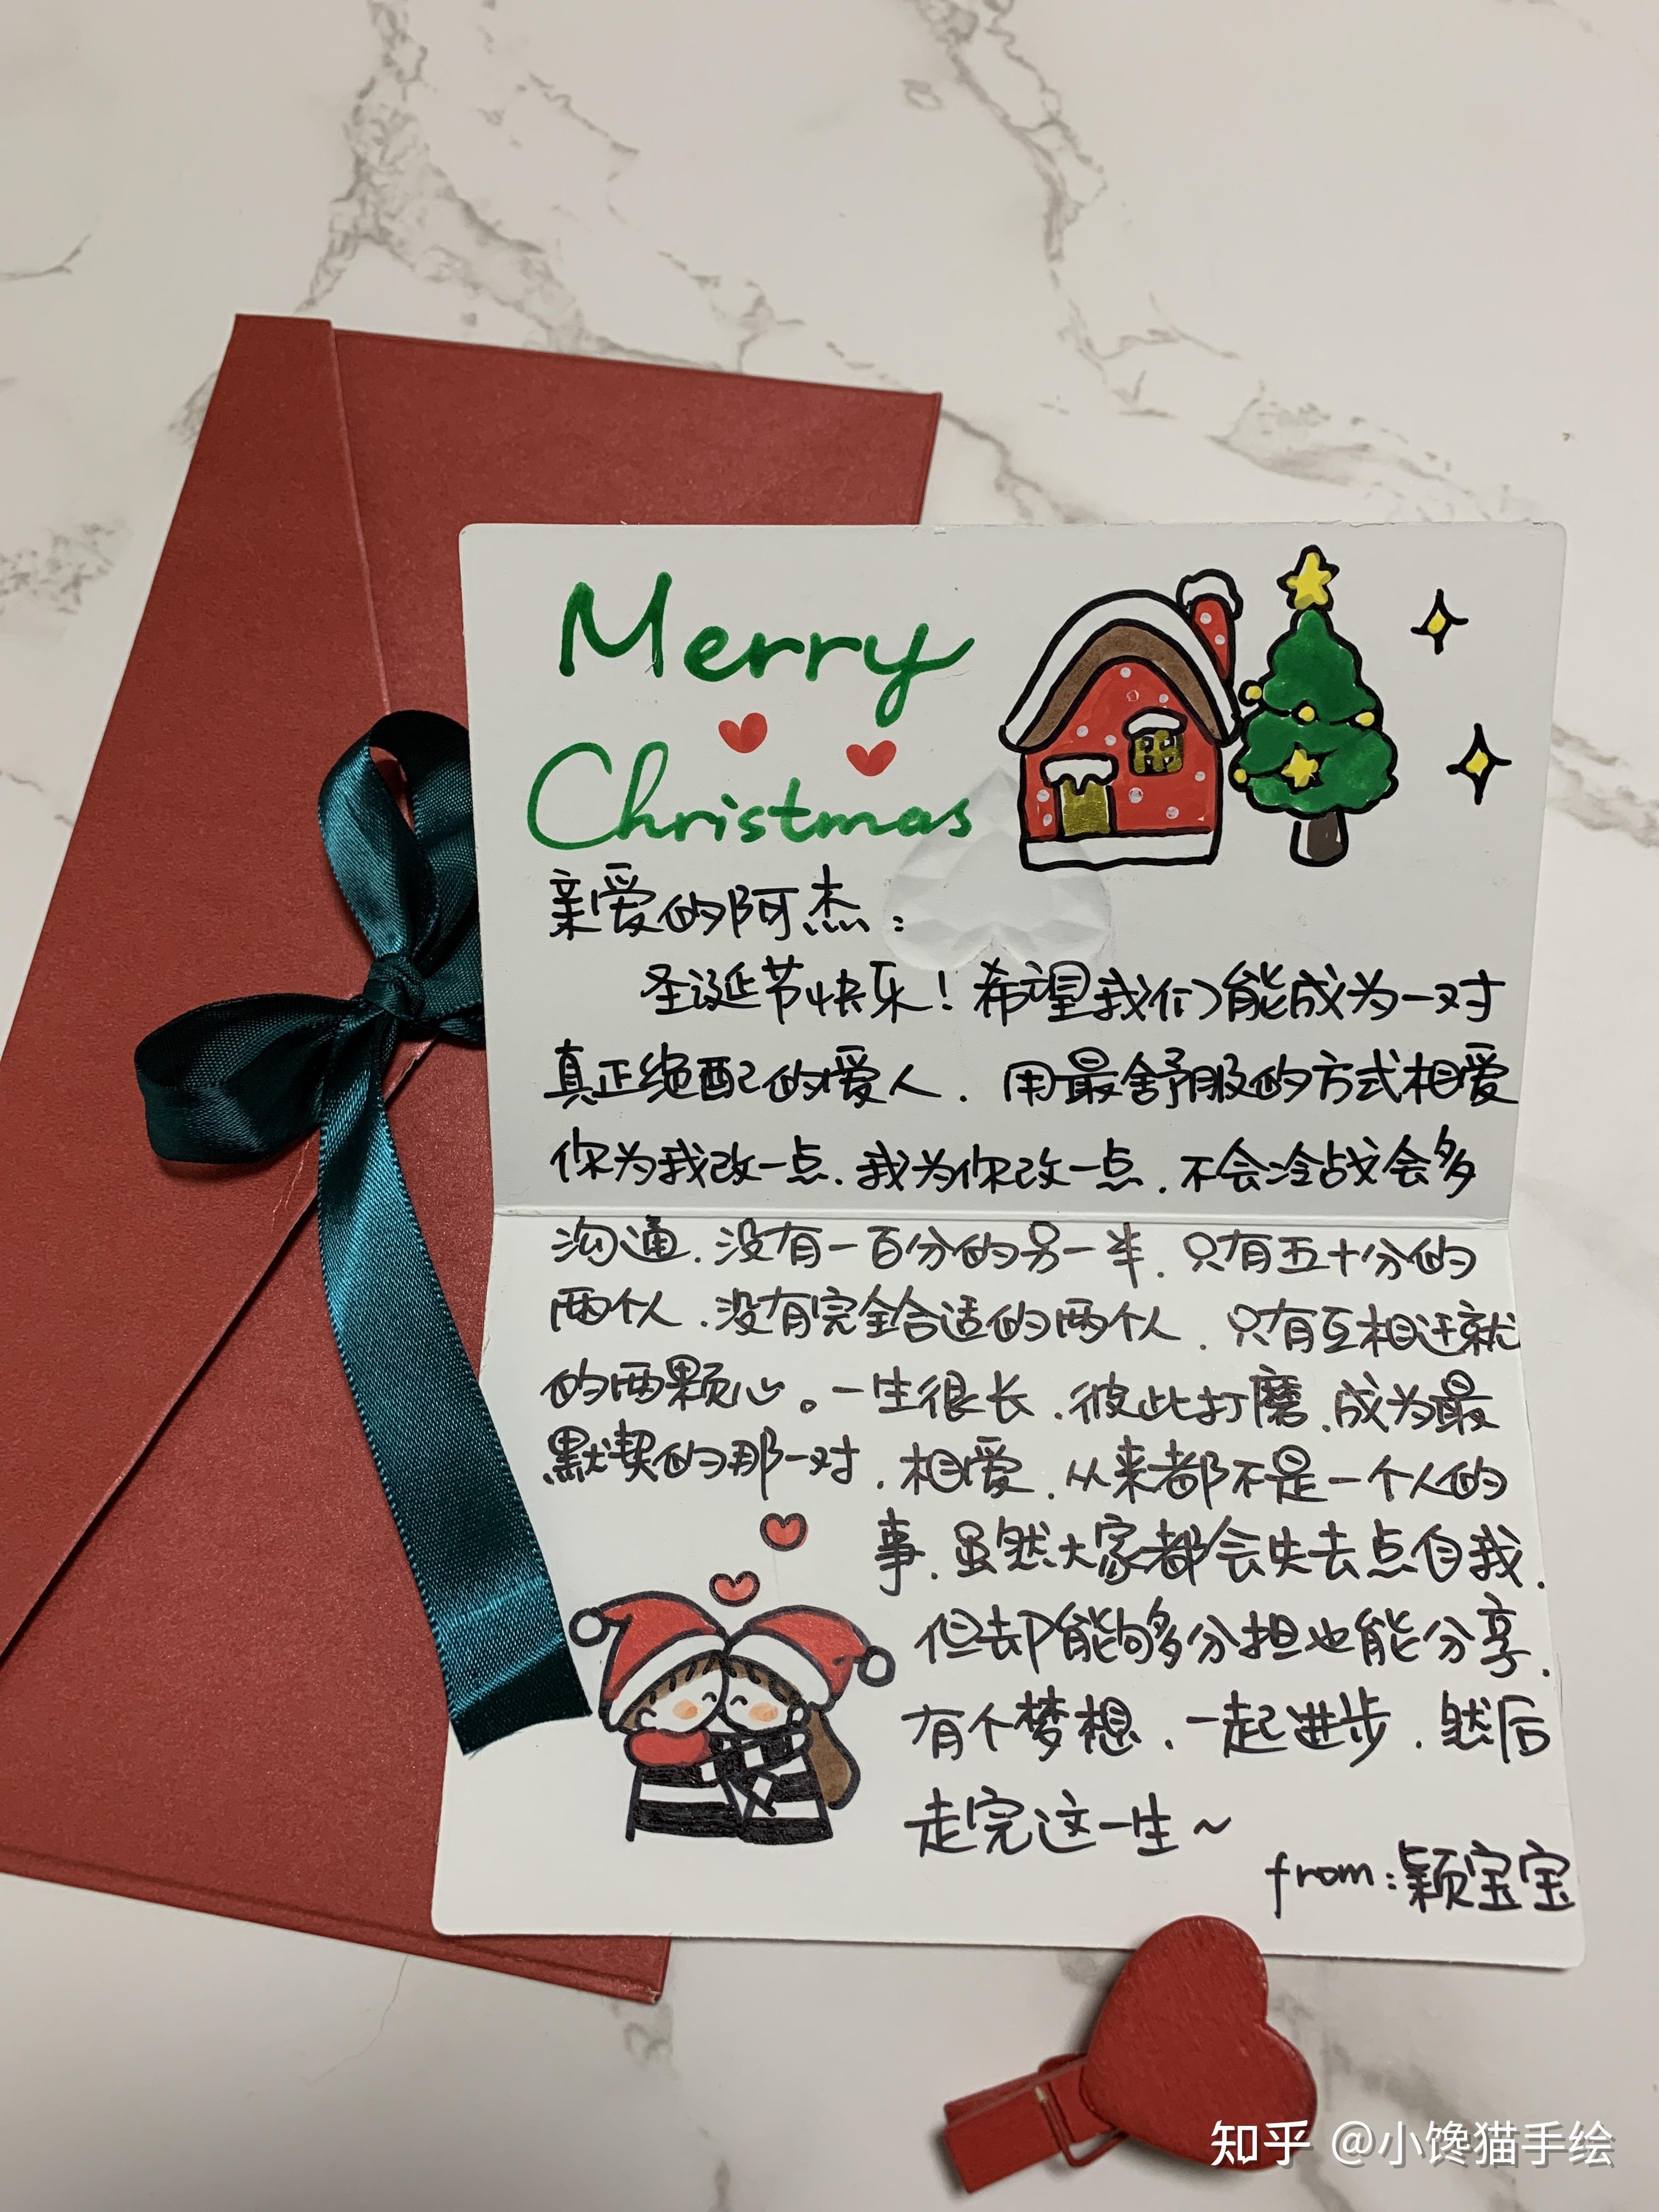 Merry
Christmas
亲爱的阿杰:
圣诞节快乐!希望我们能成为一对
真正绝配的爱人.用最舒服的方式相爱
你为我改一点.我为你改一点.不会冷战会多
沟通.没有一百分的另一半.只有五十分的
两个人.没有完全合适的两个人.只有互相迁就
的两颗心。一生很长.彼此打磨.成为最
默契的那一对.相爱.从来都不是一个人的
事.虽然大家都会失去点自我.
但却能够多分担也能分享.
有个梦想.一起进步.然后
走完这一生~
from:颖宝宝
知乎 @小馋猫手绘